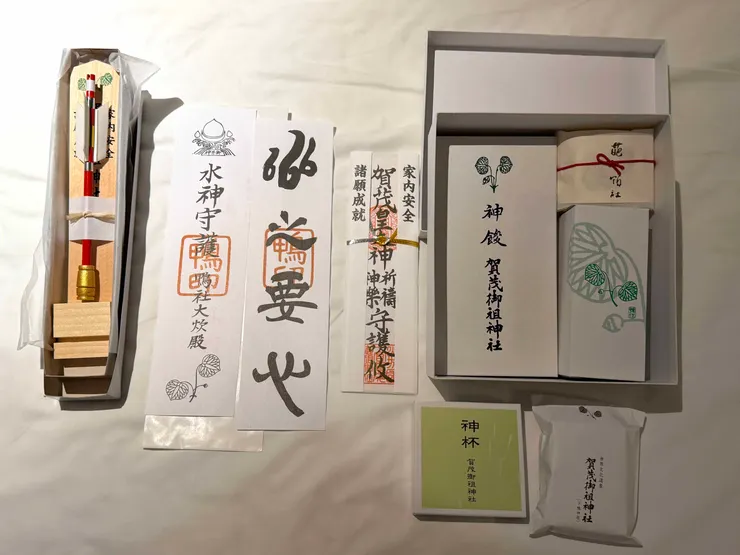 家内安全
水神守護
鴨社大炊殿
鴨印
家内安全
諸願成就
賀茂皇大神
祈祷
神楽
守護攸
神饌
賀茂御祖神社
神杯
賀茂御祖神社
賀茂御祖神社